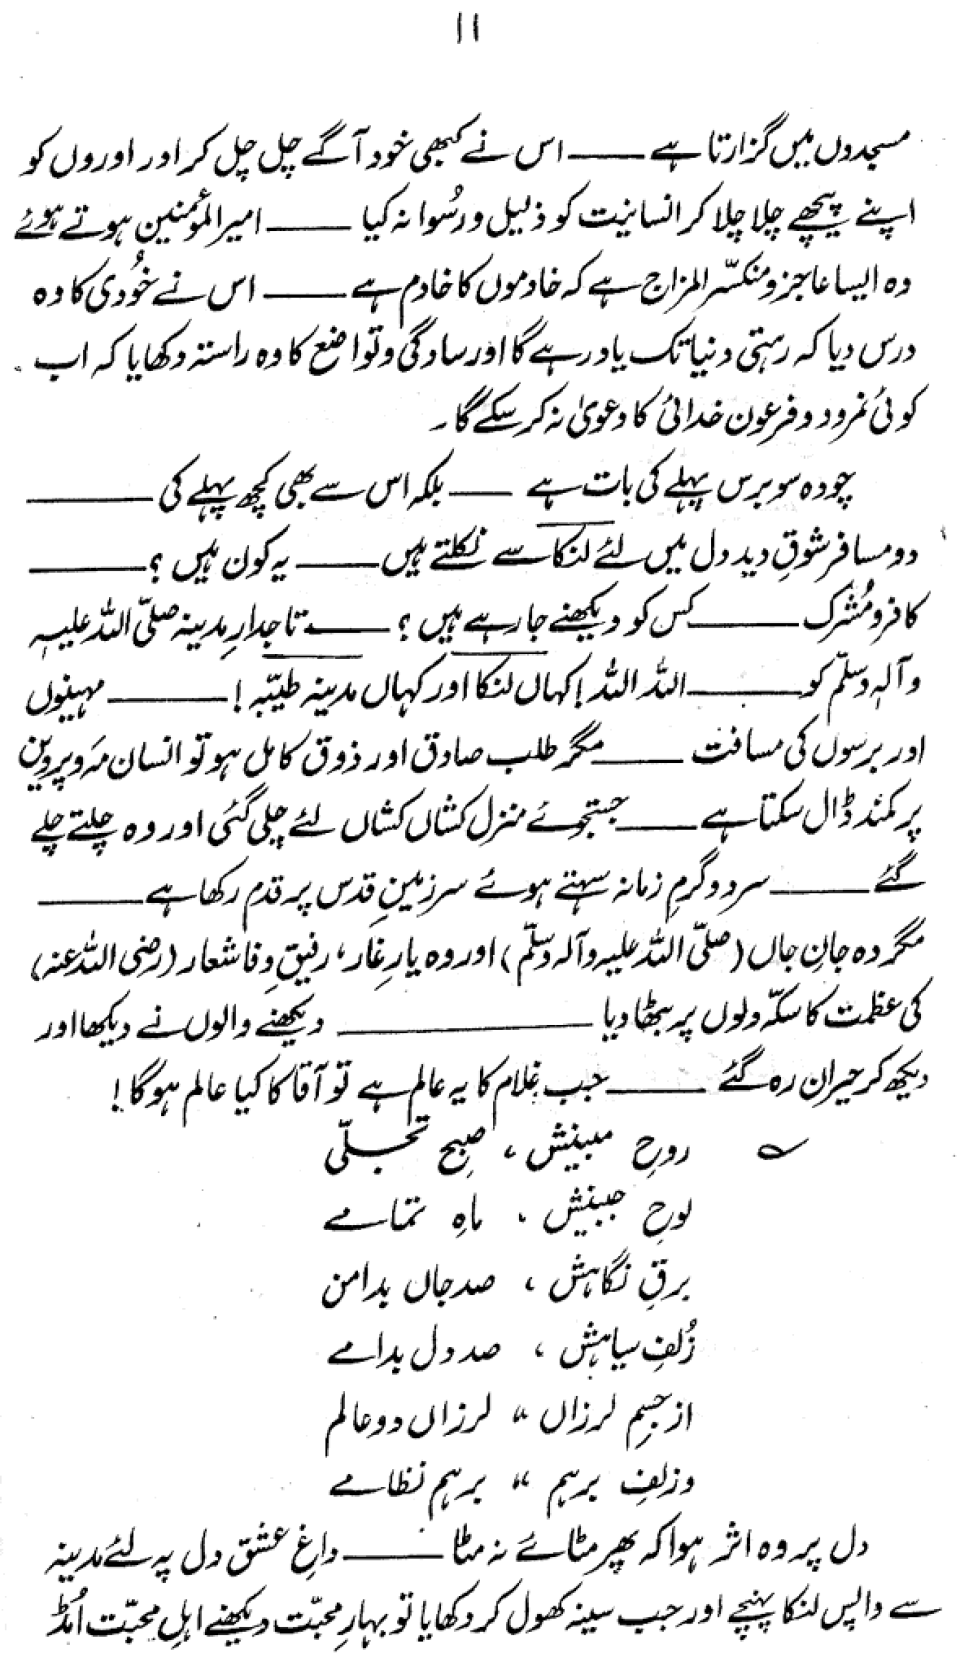 ۱۱
مسجدوں میں گزارتا ہے ——— اس نے کبھی خود آگے چل چل کر اور اوروں کو
اپنے پیچھے چلا چلا کر انسانیت کو ذلیل و رُسوا نہ کیا ——— امیر المؤمنین ہوتے ہوئے
وہ ایسا عاجز و منکسّر المزاج ہے کہ خادموں کا خادم ہے ——— اس نے خُودی کا وہ
درس دیا کہ رہتی دنیا تک یاد رہے گا اور سادگی و تواضع کا وہ راستہ دکھایا کہ اب
کوئی نمرود و فرعون خدائی کا دعویٰ نہ کر سکے گا۔
چودہ سو برس پہلے کی بات ہے ——— بلکہ اس سے بھی کچھ پہلے کی ———
دو مسافر شوقِ دید دل میں لئے لنکا سے نکلتے ہیں ——— یہ کون ہیں ؟ ———
کافر و مُشرک ——— کس کو دیکھنے جا رہے ہیں ؟ ——— تاجدارِ مدینہ صلّی اللہ علیہ
وآلہٖ وسلّم کو ——— اللہ اللہ ! کہاں لنکا اور کہاں مدینہ طیّبہ ! ——— مہینوں
اور برسوں کی مسافت ——— مگر طلب صادق اور ذوق کامل ہو تو انسان مَہ و پروین
پر کمند ڈال سکتا ہے ——— جستجوئے منزل کشاں کشاں لئے چلی گئی اور وہ چلتے چلے
گئے ——— سرد و گرمِ زمانہ سہتے ہوئے سرزمینِ قدس پر قدم رکھا ہے ———
مگر وہ جانِ جاں (صلّی اللہ علیہ وآلہ وسلّم) اور وہ یارِ غار، رفیقِ وفا شعار (رضی اللہ عنہ)
کی عظمت کا سکّہ دلوں پر بٹھا دیا ——— دیکھنے والوں نے دیکھا اور
دیکھ کر حیران رہ گئے ——— جب غلام کا یہ عالم ہے تو آقا کا کیا عالم ہوگا !
؎ روحِ مبینش ، صبحِ تجلّی
لوحِ جبینش ، ماہِ تمامے
برقِ نگاہش ، صد جاں بدامن
زُلفِ سیاہش ، صد دل بدامے
از جسمِ لرزاں ،، لرزاں دو عالم
و زلفِ برہم ،، برہم نظامے
دل پر وہ اثر ہوا کہ پھر مٹائے نہ مٹا ——— داغِ عشق دل پہ لئے مدینہ
سے واپس لنکا پہنچے اور جب سینہ کھول کر دکھایا تو بہارِ محبّت دیکھنے اہلِ محبّت اُمڈ